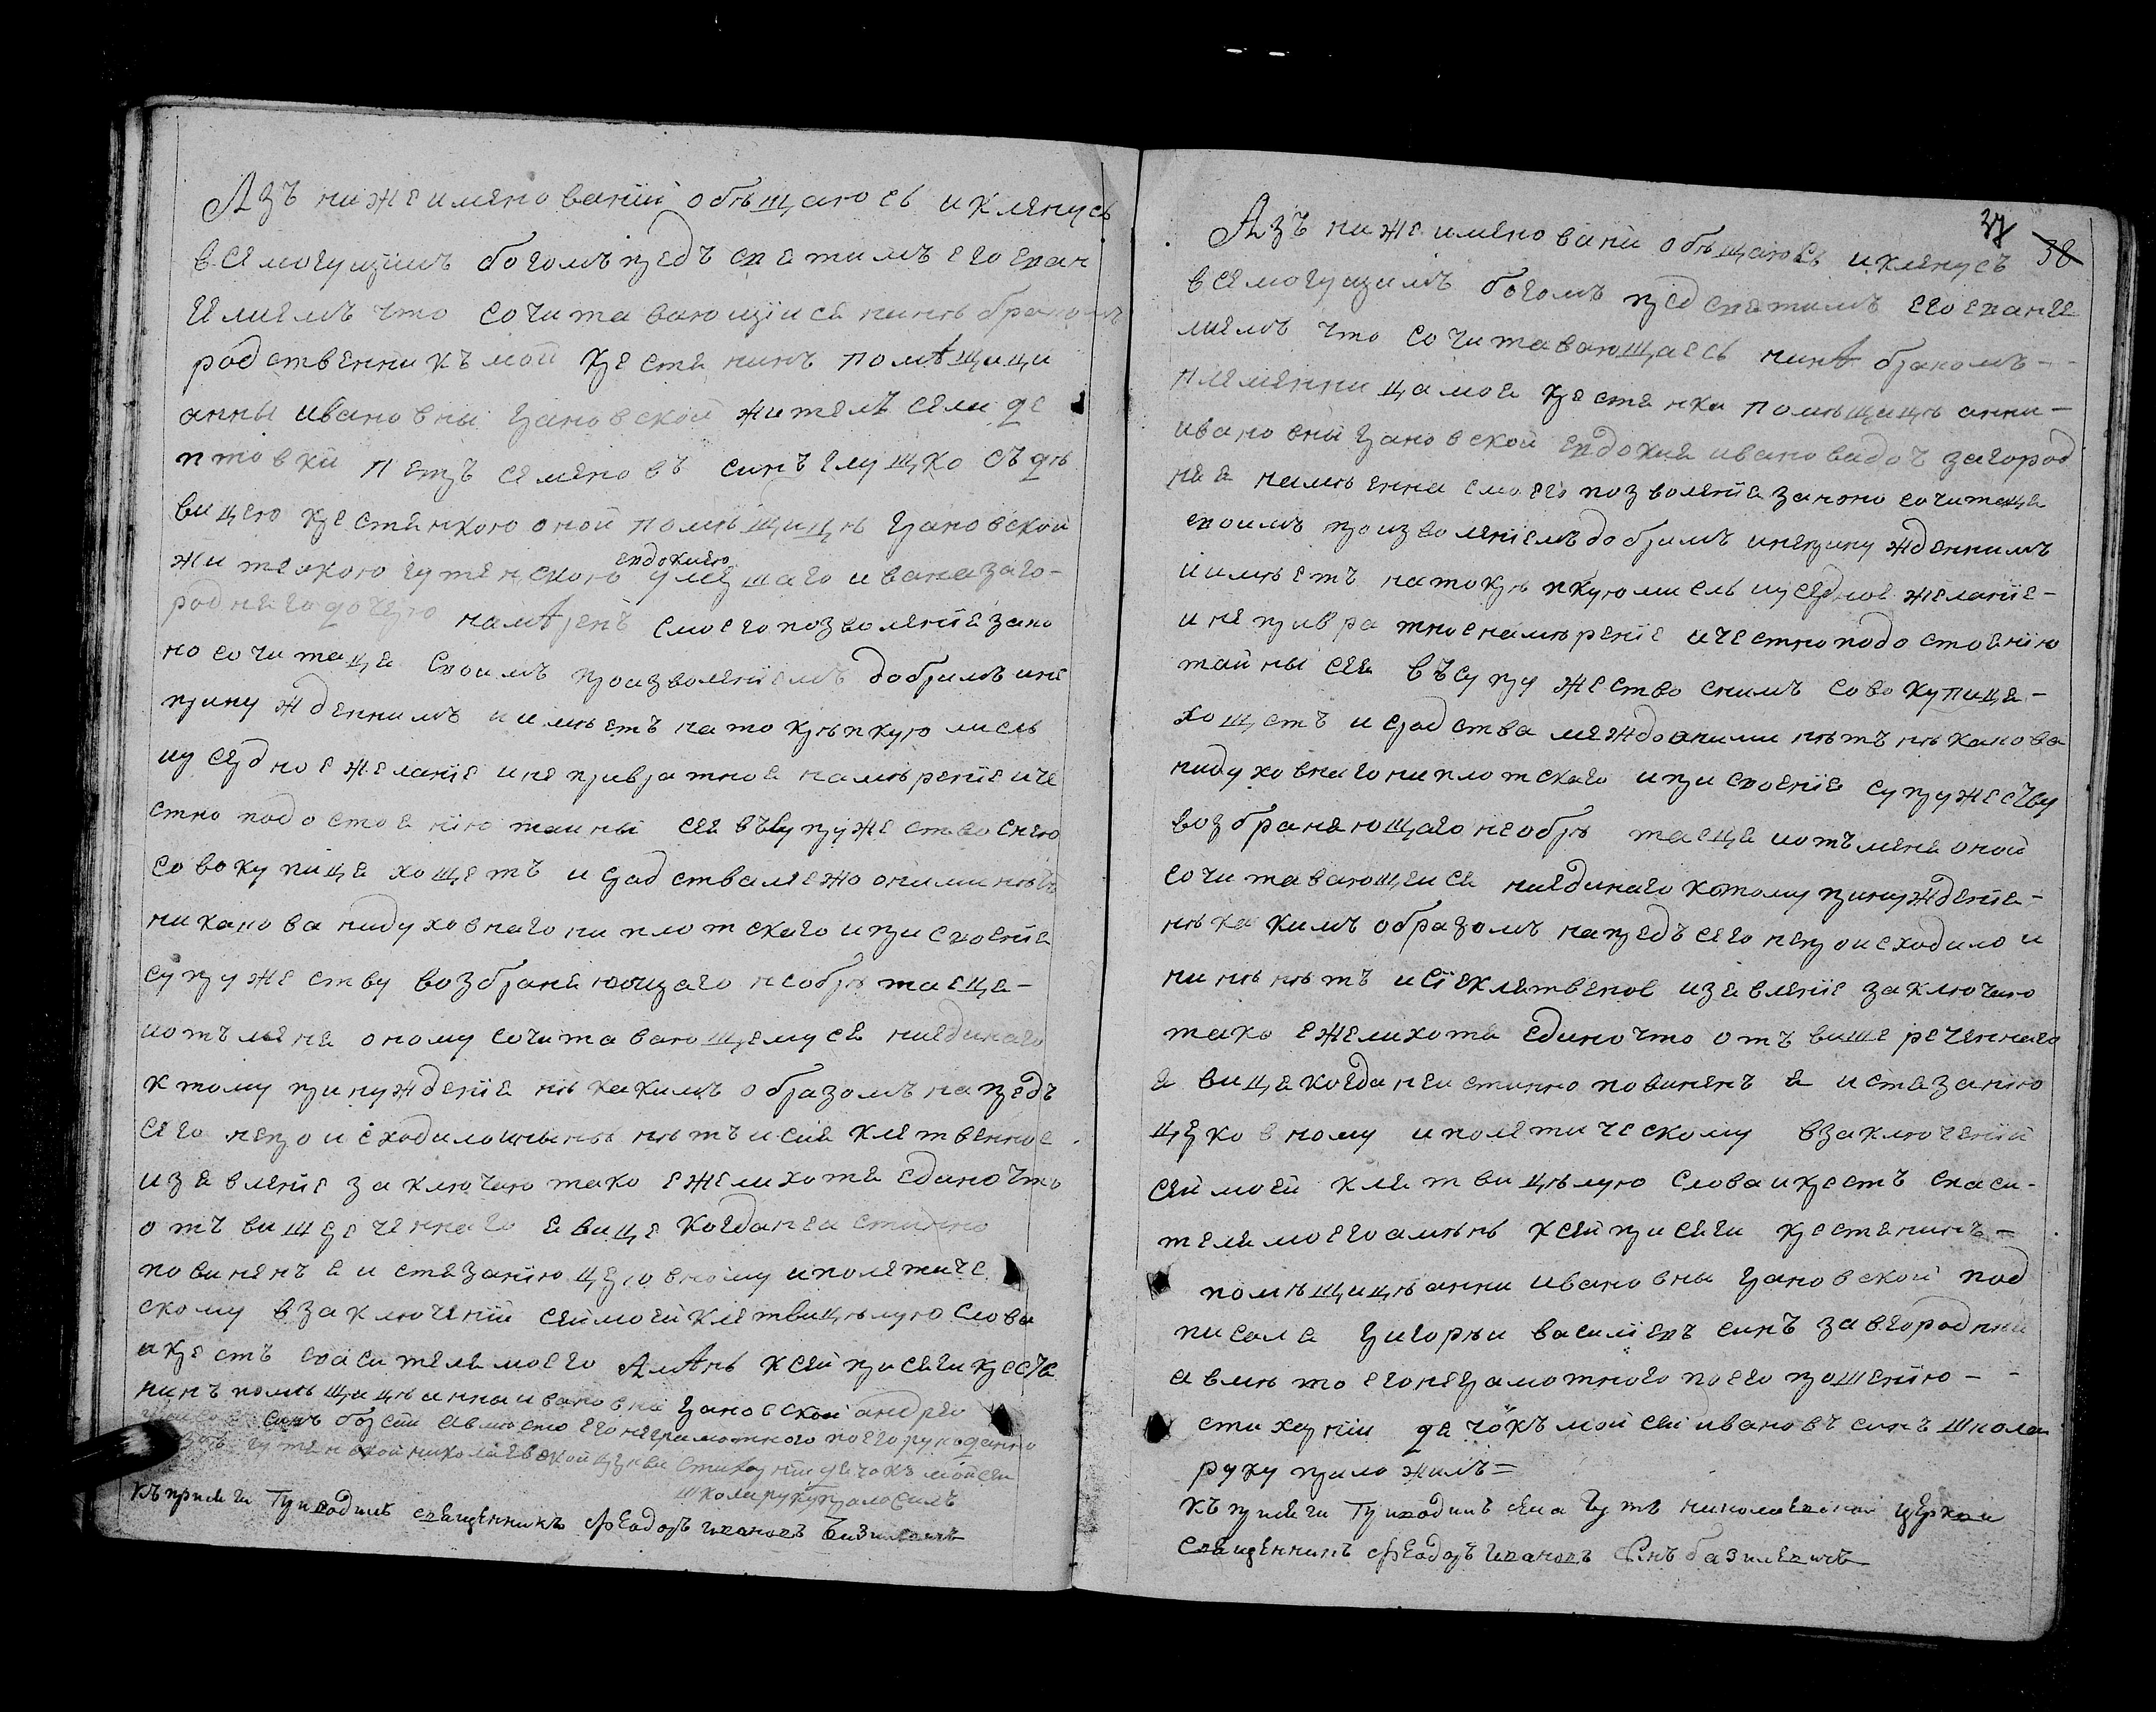 Азъ нижеимяновании обѣщаюсь и клянусь
всемогущимъ богомъ предъ светимъ его еван
гелиемъ что сочитавающиися нинѣ бракомъ
родственникъ мой крестянинъ помѣщици
анны ивановны грановской жителъ сели де
птовки петръ семяновъ синъ емущко съ дѣ
вицею крестянкою оной помѣщицѣ грановской
жителкою гутянскою евдокиею умершаго ивана заго-
роднего дочерю намѣренъ смоего позволения зако
но сочитаця своимъ произволениемъ добримъ ине
принужденнимъ и имѣетъ на то крѣпкую мисль
и усердное желание и непривратное намѣрение и че
стно подостоянию таини сея въ супружество снею
совокупиця хощетъ и сродства межо оними нѣтъ
никакова ни духовнаго ни плотскаго и при своения
супружеству возбраняющаго необрѣтаеця-
и отъ мене оному сочитавающемуся ниединаго
к тому принуждения нѣкакимъ образомъ напредъ
сего непроисходило и нынѣ нѣтъ и сия клятвенное
изявление заключаю тако ежели хотя едино что
отъ вишереченнаго явиця когда неистинно
повиненъ я истязанию церковному и полятиче
скому в заключении сей моей клятви цѣлую слова
и крестъ спасителя моего Амѣнь к сей присяги крестя
нинъ помѣщицѣ анна ивановна грановской андрей
синъ бозви а вмѣсто его неграмотного по его рукоданю
гутянской николаевской церкви стихарнии дячокъ мойсей
школи руку приложилъ
Къ присяги приводилъ священникъ Феодоръ Ивановъ Базилевичъ
37 38
Азъ нижеимяновани обѣщаюсь и клянусъ
всемогущимъ богомъ пред светимъ его еванге
лиемъ что сочитавающаесь нинѣ бракомъ--
племянница моя крестянка помѣщицѣ анни-
ивановны грановской евдокия иванова дочъ загород
няя намѣренна смоего позволения законо сочитаця
своимъ произволениемъ добримъ и непринужденнимъ
и имѣетъ на то крѣпкую мисль и усердное желание-
и непривратное намѣрение и честно подостоянию
тайны сея въ супружество снимъ совокупиця-
хощетъ и сродства междо оними нѣтъ нѣкакова
ни духовнаго ни плотскаго и при своения супружесъву
возбраняющаго необрѣтаеця и отъ мене оной
сочитавающеися ниединаго к тому принуждения-
нѣкакимъ образомъ напредъ сего непроисходило и
нинѣ нѣтъ и сие клятвеное изявление заключаю
тако ежели хотя едино что отъ више реченнаго
я вица когда неистинно повиненъ я истязанию
церковному и полятическому в заключении
сей моей клятви цѣлую слова и крестъ спаси-
теля моего амѣнь к сей присяги крестянинъ-
помѣщицѣ анни ивановны грановской под
писалса григорѣи василиевъ синъ завгороднии
а вмѣто его неграмотного по его прошению--
стихарнии дячокъ мойсей ивановъ синъ школи
руку приложилъ=
Къ присяги приводилъ села Гутъ николаевской церкви
Священникъ Феодоръ Ивановъ Синъ базилевичъ